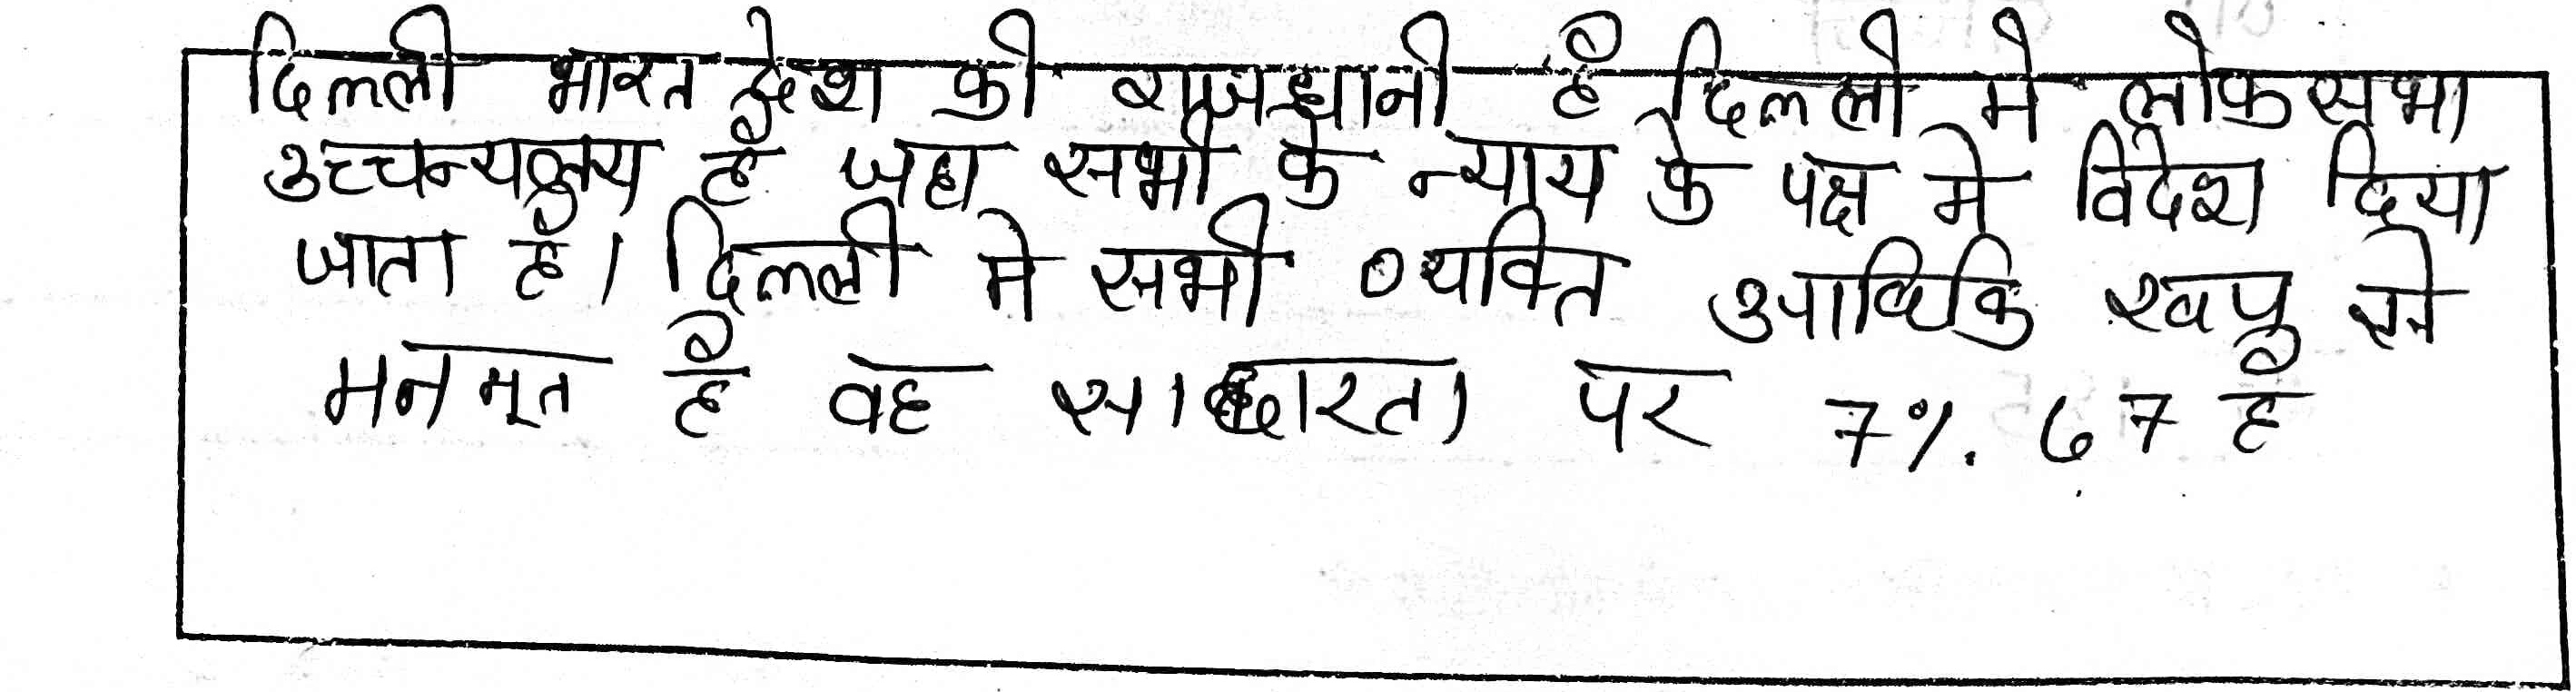 दिल्ली भारत देश की राजधानी है दिल्ली मे लोकसभा
उच्चन्यलय है जहा सभी के न्याय के पक्ष मे विदेश दिया
जाता है। दिल्ली मे सभी व्यक्ति आर्थिक रुप से
मनमूत है वह साक्षारता पर 7%. 67 है